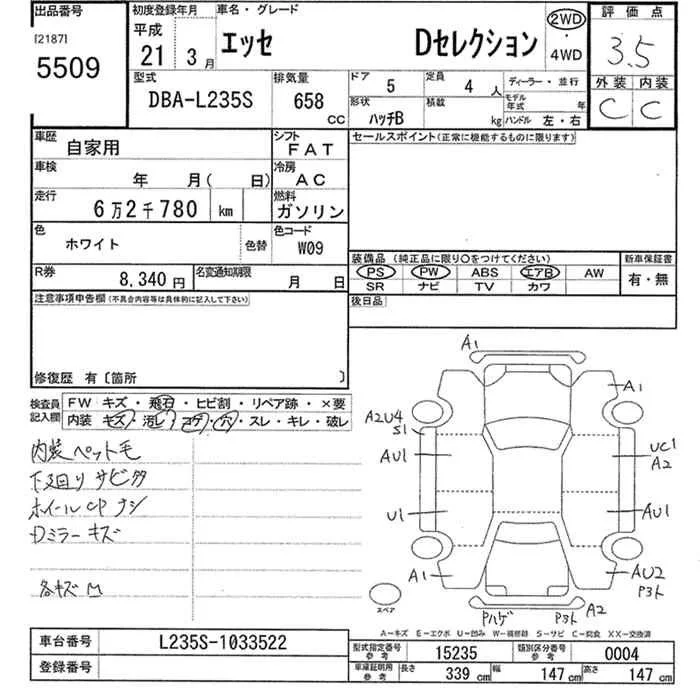 出品番号
[2187]
5509
初度登録年月
平成
21 3月
車名・グレード
エッセ Dセレクション
2WD
・
4WD
評価点
3.5
外装 内装
C C
型式
DBA-L235S
排気量
658 CC
ドア 5
定員 4 人
ディーラー・並行
形状 ハッチB
積載 kg
モデル年式 年
ハンドル 左・右
車歴
自家用
シフト
FAT
車検
年 月( 日)
冷房
AC
走行
6万2千780 km
燃料
ガソリン
色
ホワイト 色替
色コード
W09
R券
8,340円
名変通知期限
月 日
セールスポイント(正常に機能するものに限ります)
装備品(純正品に限り○をつけてください)
PS PW ABS エアB AW
SR ナビ TV カワ
新車保証書
有・無
後日品
注意事項申告欄(不具合内容等は具体的に記入して下さい)
修復歴 有〔箇所 〕
検査員記入欄
FW キズ・飛石・ヒビ割・リペア跡・×要
内装 キズ・汚レ・コゲ・穴・スレ・キレ・破レ
内装ペット毛
下廻りサビタ
ホイールCPナシ
Dミラーキズ
各キズM
A1
A1
A2U4
S1
AU1
UC1
A2
U1
AU1
A1
AU2
P3ト
スペア
Pハゲ P3ト A2
A-キズ E-エクボ U-凹み W-補修跡 S-サビ C-腐食 XX-交換済
車台番号 L235S-1033522
登録番号
型式指定番号 参考 15235
類別区分番号 参考 0004
車庫証明用 参考 長さ 339 cm 幅 147 cm 高さ 147 cm